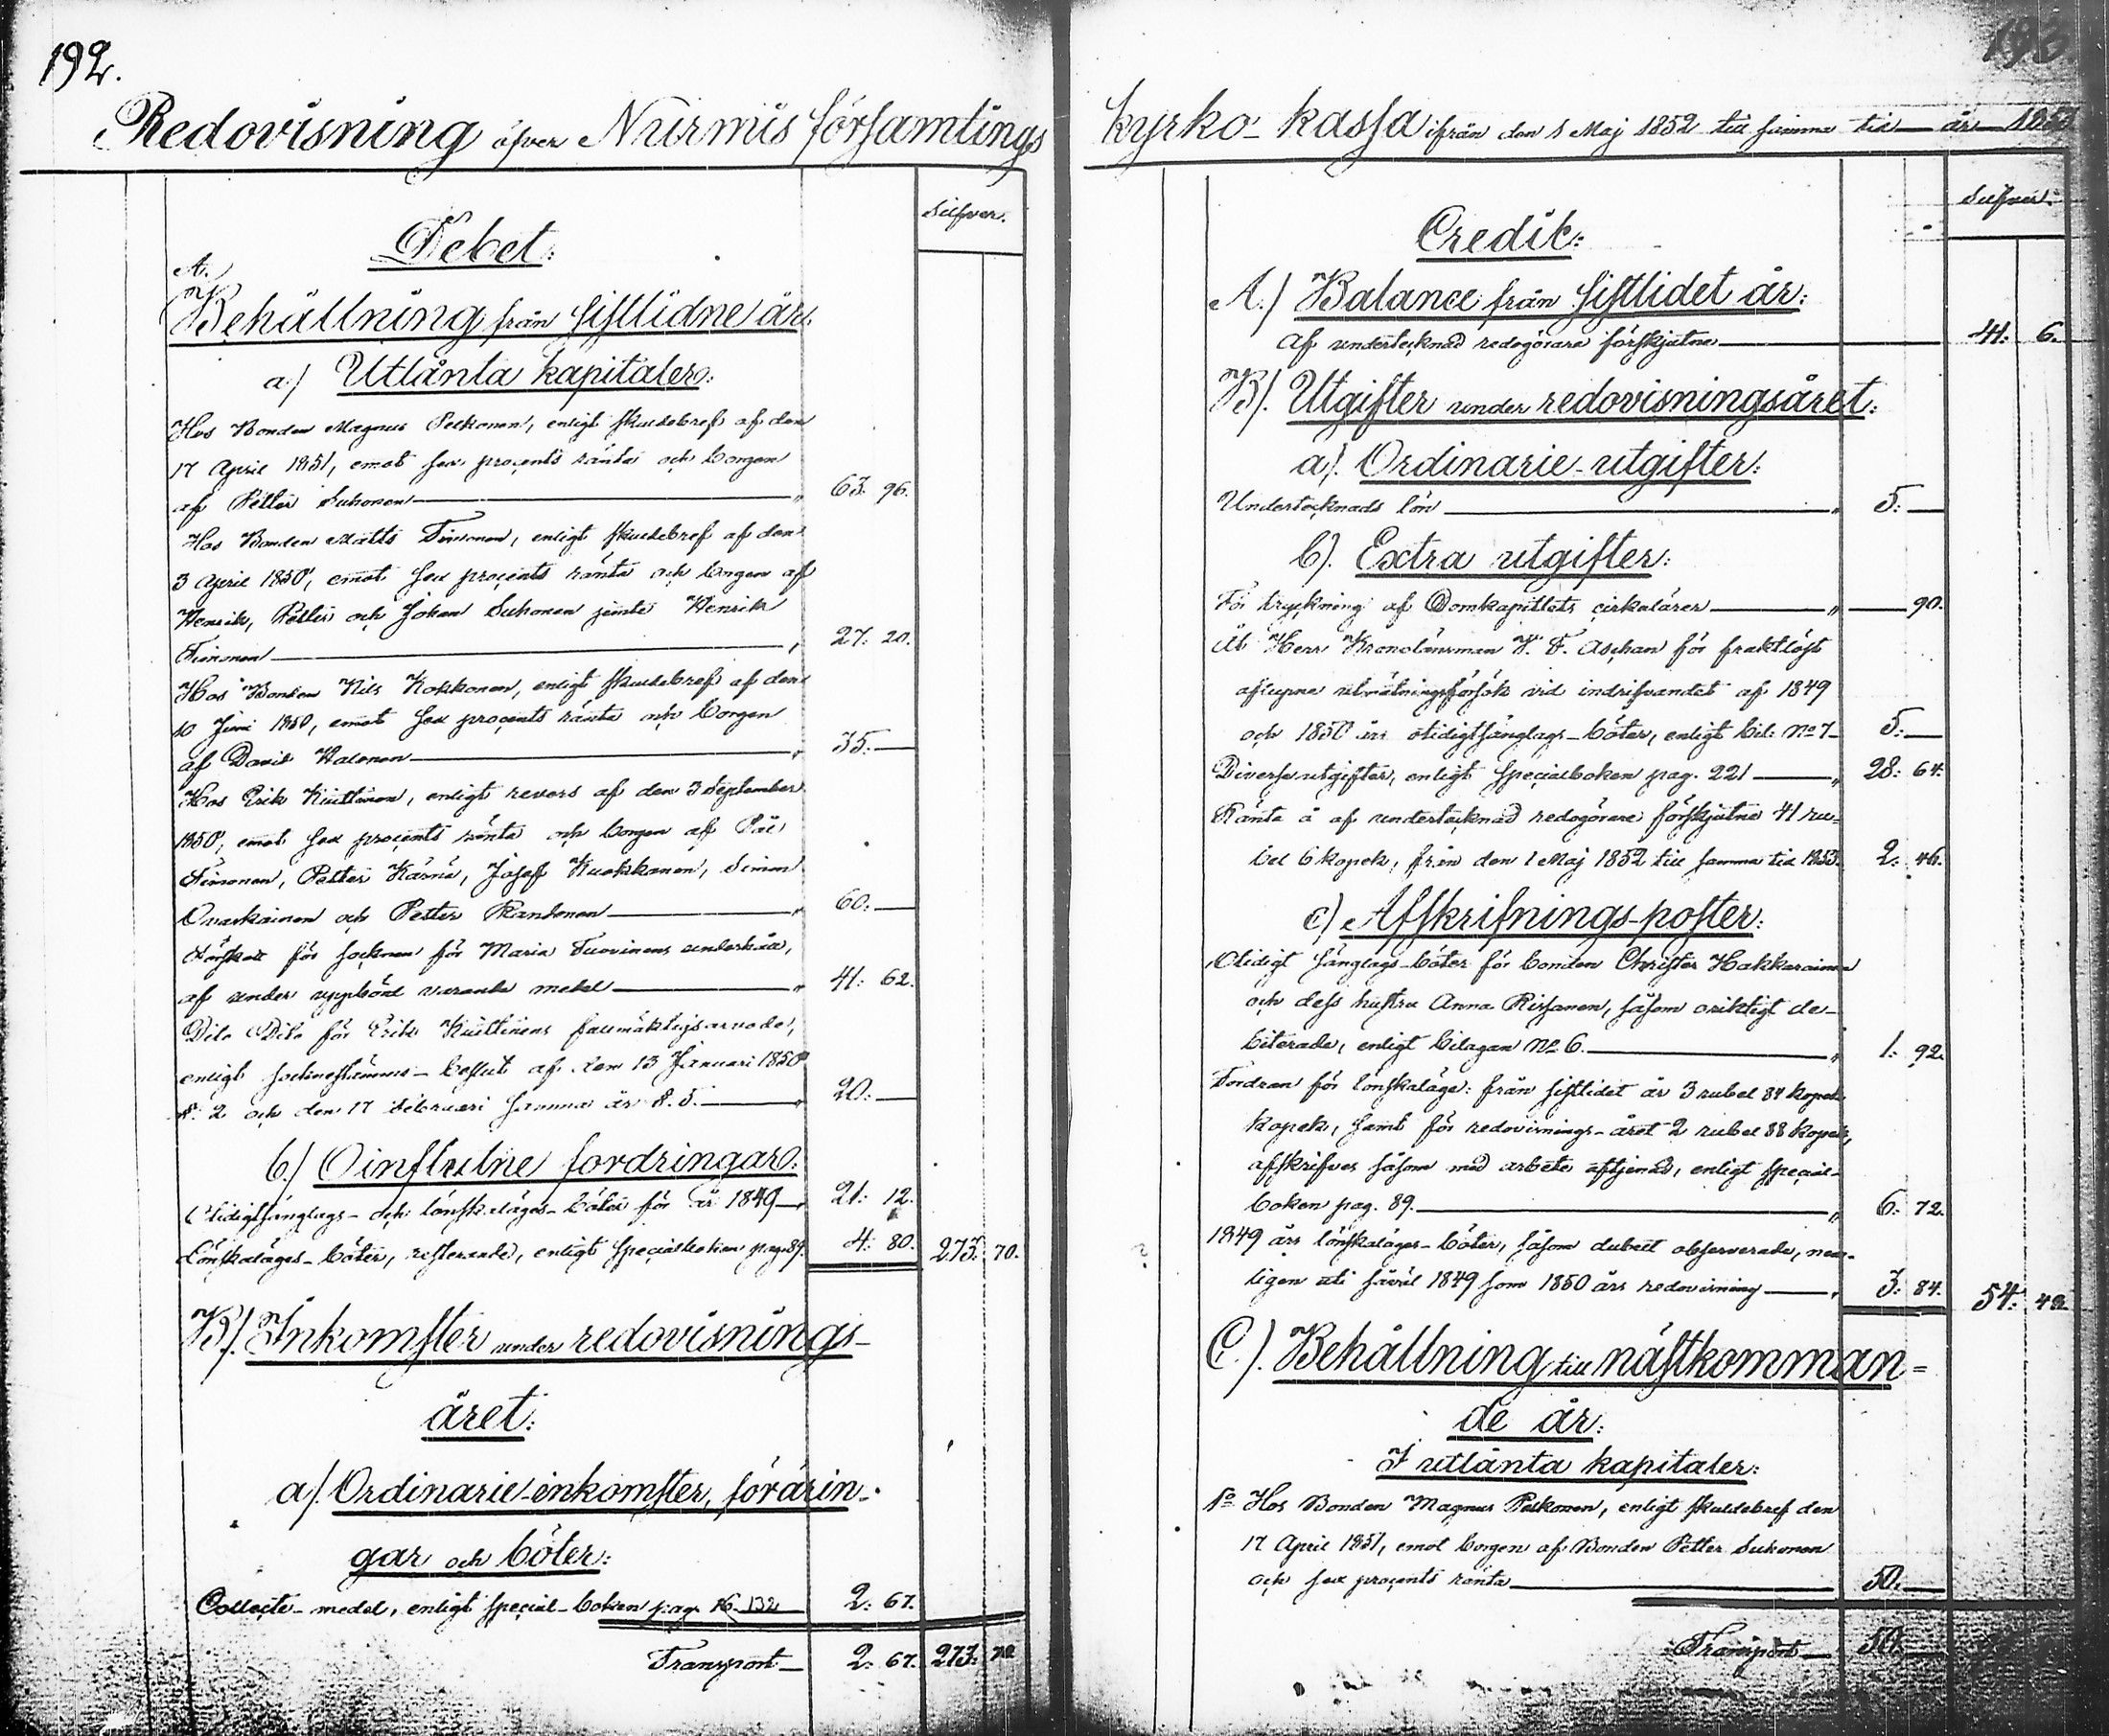 192.
Redovisning öfver Nurmis församlings
Silfver.
Debet:
A.
Behållning från sistlidne år:
a) Utlånta kapitaler:
Hos Bonden Magnus Pelkonen, enligt skuldebref af den
17 April 1851, emot sex procents ränta och borgen
af Petter Suhonen — " 63. 96.
Hos Bonden Matts Timonen, enligt skuldebref af den
3 April 1850, emot sex procents ränta och borgen af
Henrik, Petter och Johan Suhonen jemte Henrik
Timonen — " 27. 20.
Hos Bonden Nils Kokkonen, enligt skuldebref af den
10 Juni 1850, emot sex procents ränta och borgen
af David Halonen — " 35. —
Hos Erik Kiuttinen, enligt revers af den 3 September
1850, emot sex procents ränta och borgen af Pål
Timonen, Petter Kärnä, Josef Kuokkanen, Simon
Ovaskainen och Petter — " 60. —
Förskott för socknen för Maria Tuovinens underhåll,
af under uppbörd varande medel — " 41. 62.
Dito Dito för Erik Kiuttinens fullmäktigsarvode,
enligt sockenstämmo-beslut af den 13 Januari 1850
§. 2 och den 17 Februari samma år §. 5. — " 20. —
b.) Oinflutne fordringar:
Otidigtsänglags- och lönskaläges-böter för år 1849 — 21. 12.
Lönskaläges-böter, resterande, enligt specialboken pag. 89. 4. 80. 273. 70.
B). Inkomster under redovisnings-
året:
a). Ordinarie-inkomster, förärin-
gar och böter:
Collecte-medel, enligt special-boken pag. 132 2. 67.
Transport — 2. 67. 273. 70
193.
kyrko-kassa ifrån den 1 Maj 1852 till samma tid — år — 1853
Silfver.
Credit:
A.) Balance från sistlidet år:
Af undertecknad redogörare förskjutne — 41. 6.
B). Utgifter under redovisningsåret:
a). Ordinarie-utgifter:
Undertecknads lön — " 5. —
b). Extra utgifter:
För tryckning af Domkapitlets cirkulärer — " — 90.
Åt Herr Kronolänsman V. F. Aschan för fruktlöst
aflupne utmätningsförsök vid indrifvandet af 1849
och 1850 års otidigtsänglags-böter, enligt bil: No 7 — 5. —
Diverse utgifter, enligt specialboken pag. 221 — " 28. 64.
Ränta å af undertecknad redogörare förskjutne 41 ru-
bel 6 kopek, från den 1 Maj 1852 till samma tid 1853. 2. 46.
c) Afskrifnings-poster:
Otidigt sänglags-böter för bonden Christer Hakkarainen
och dess hustru Anna Rissanen, såsom oriktigt de-
biterade, enligt bilagan No 6. — " 1. 92.
Fordran för lönskaläge: från sistlidet år 3 rubel 84 kopek
kopek, samt för redovisnings-året 2 rubel 88 kopek,
afskrifves såsom med arbete aftjenad, enligt special-
boken pag. 89. — " 6. 72.
1849 års lönskaläges-böter, såsom dubelt observerade, nem-
ligen uti såväl 1849 som 1850 års redovisning — " 3. 84. 54. 48.
C.). Behållning till nästkomman-
de år:
I utlånta kapitaler:
1o Hos Bonden Magnus Pelkonen, enligt skuldebref den
17 April 1851, emot borgen af Bonden Petter Suhonen
och sex procents ränta — 50. —
Transport — 50. —